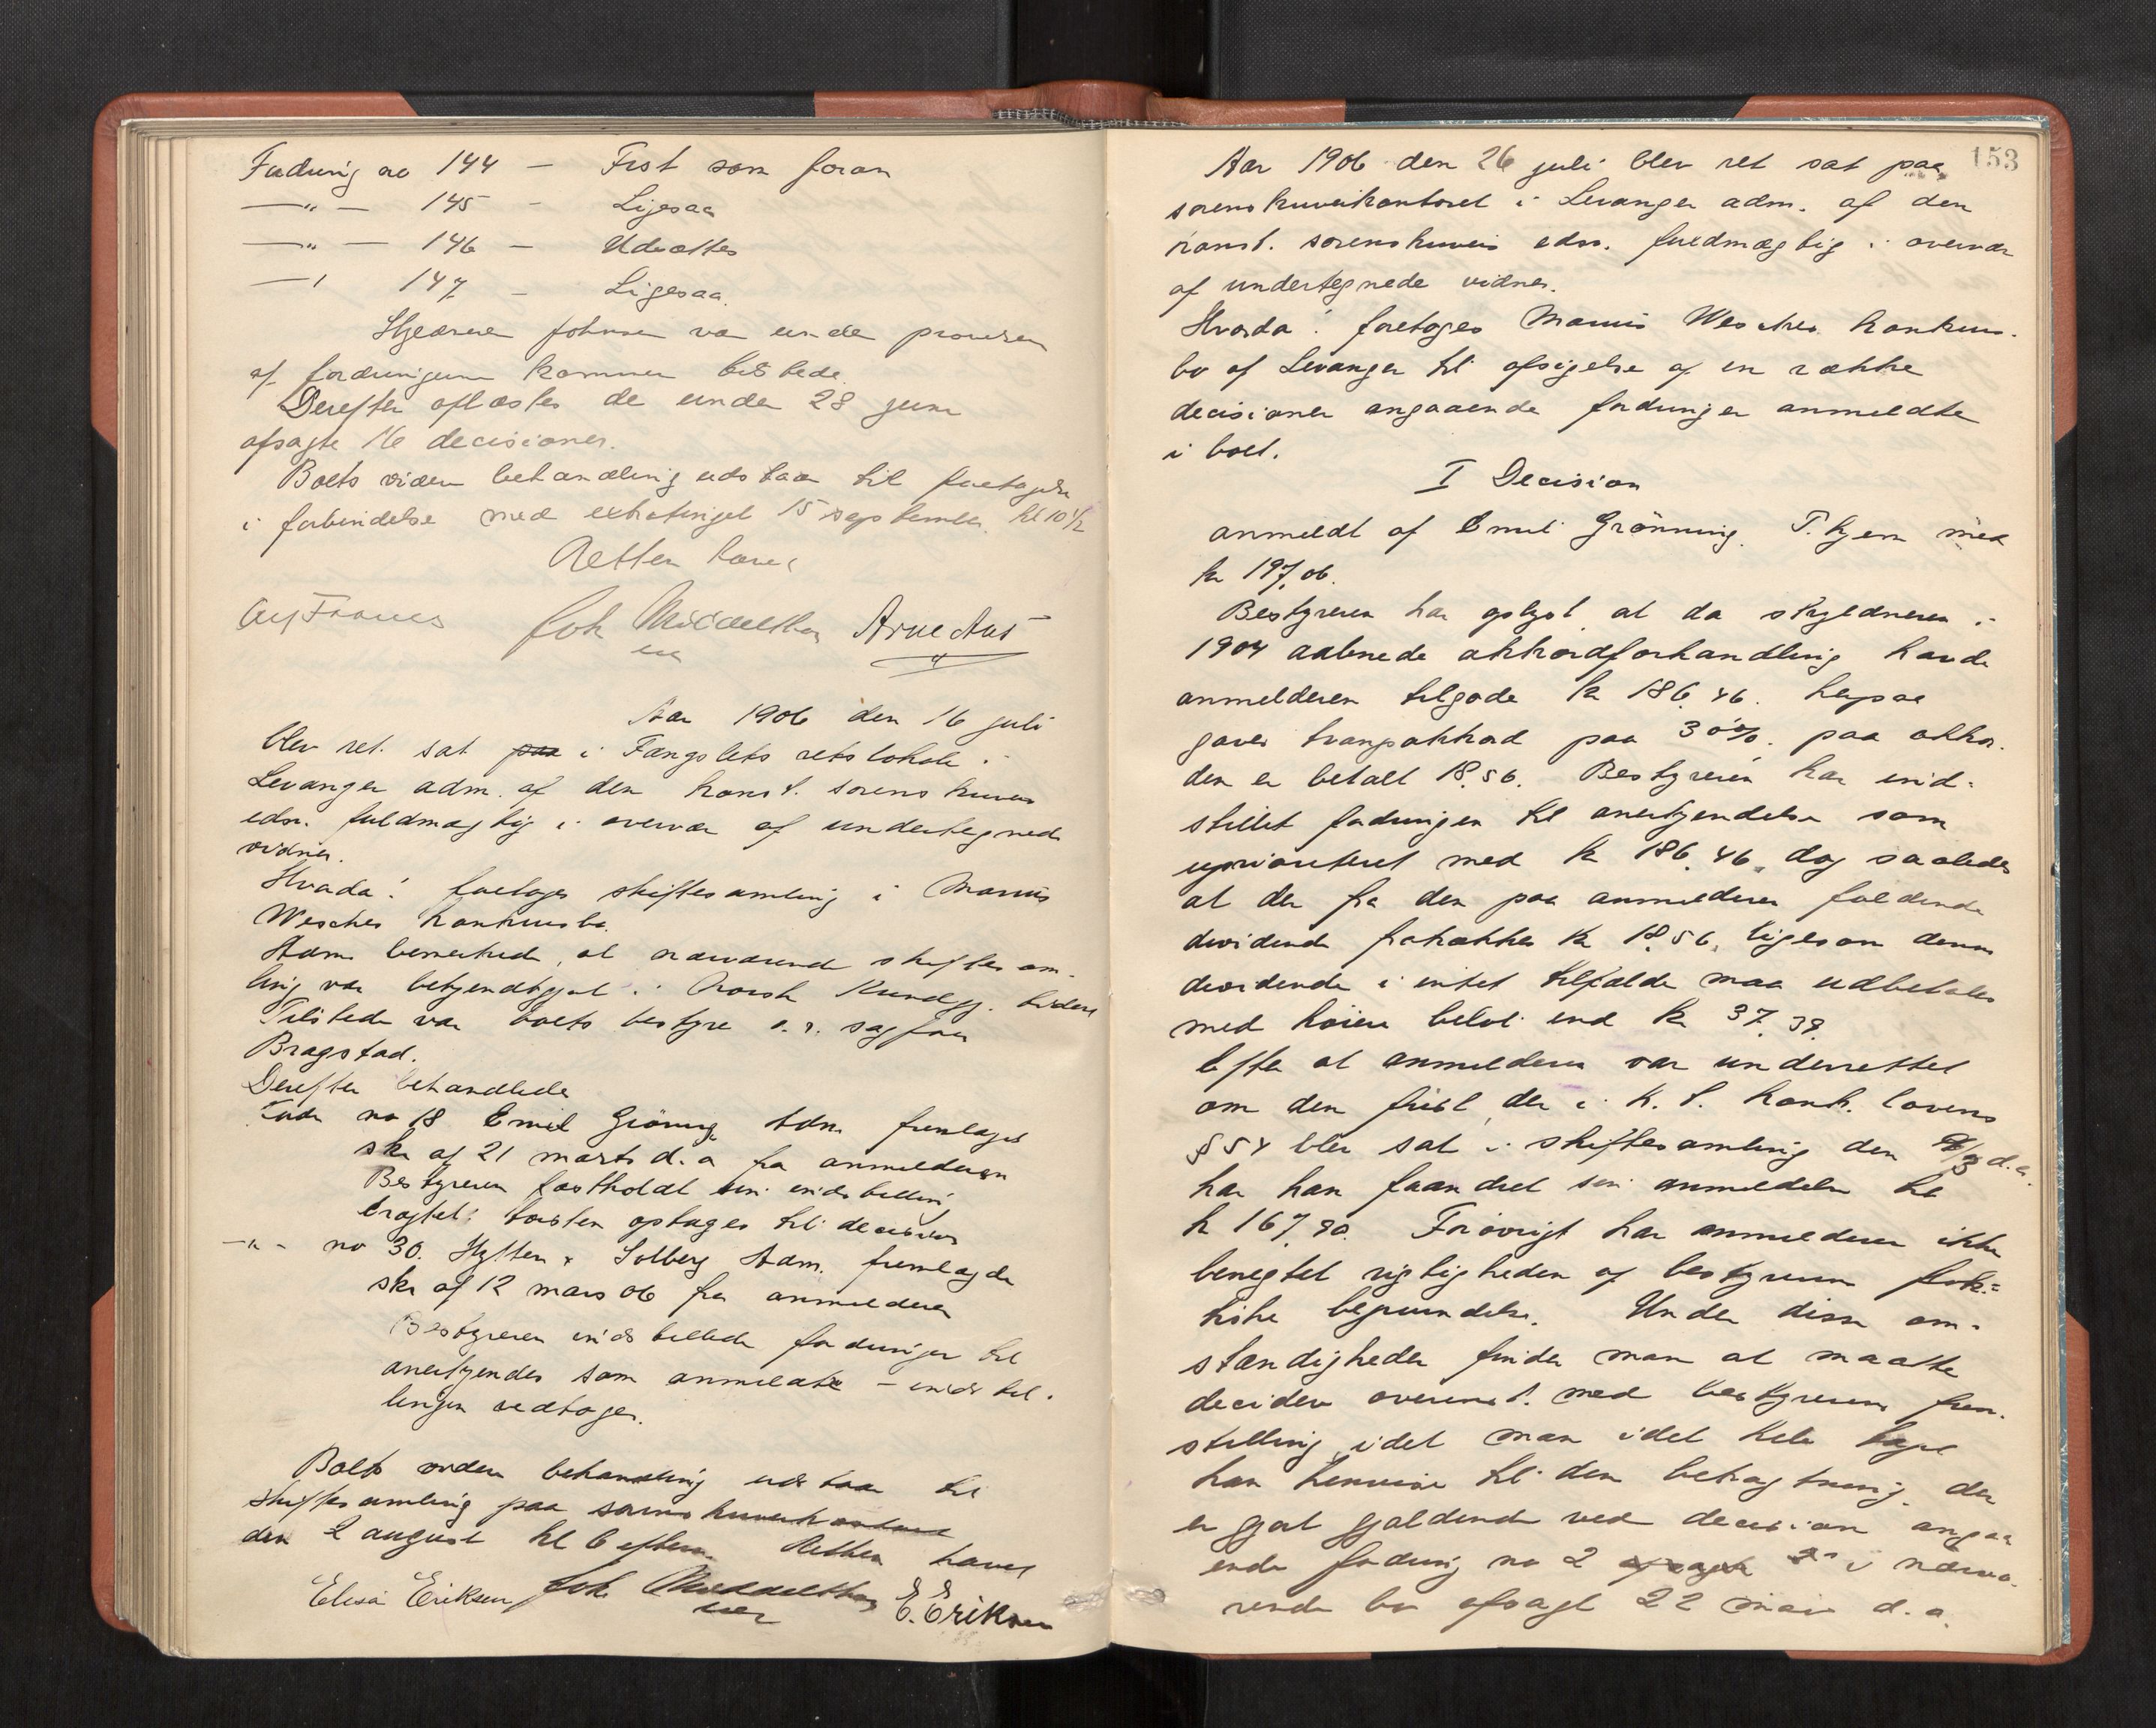 Fordring no 144 - Frist som foran
—"— 145 - Ligesaa
—"— 146 - Udsættes
—" 147 - Ligesaa.
Skjønner Johnsen var under prøvelsen
af fordringerne kommen tilstede.
Derefter oplæstes de under 28 juni
afsagte 16 decisioner.
Boets videre behandling udstaar til foretagelse
i forbindelse med extratinget 15 september kl 10 1/2
Retten hævet
Joh Middelthon Arne Aas
Aar 1906 den 16 juli
blev ret sat paa i Fængslets retslokale i
Levanger adm. af den konst. sorenskriver
edsv. fuldmægtig i overvær af undertegnede
vidner.
Hvorda! foretoges skiftesamling i Marius
Wesches konkursbo.
Adm. bemerkede, at nærværende skiftesam-
ling var bekjendtgjort i Norsk Kundgj. tidende
Tilstede var boets bestyrer o.r. sagfører
Bragstad.
Derefter behandledes
Fordr no 18 Emil Grönning Adm. fremlagde
skr af 21 marts d.a fra anmelderen
Bestyreren fastholdt sin indstilling
Eragtet: tvisten optages til decision
—"- no 30. Hytten & Solberg Adm. fremlagde
skr af 12 mars 06 fra anmelderen
Bestyreren indstillede fordringen til
anerkjendes som anmeldt - indstil-
lingen vedtoges.
Boets videre behandling udstaar til
skiftesamling paa sorenskriverkontoret
den 2 august kl 6 efterm. Retten hævet
Elisa Eriksen Joh. Middelthon E. Eriksen
153
Aar 1906 den 26 juli blev ret sat paa
sorenskriverkontoret i Levanger adm. af den
konst. sorenskrivers edsv. fuldmægtig i overvær
af undertegnede vidner.
Hvorda! foretoges Marius Wesches konkurs-
bo af Levanger til afsigelse af en række
decisioner angaaende fordringer anmeldte
i boet.
I Decision
anmeldt af Emil Grönning T.hjem med
kr 197.06.
Bestyreren har oplyst at da skyldneren i
1904 aabnede akkordforhandling havde
anmelderen tilgode kr 186.46. herpaa
gaves tvangsakkord paa 30%. paa akkor-
den er betalt 18.56. Bestyreren har ind-
stillet fordringen til anerkjendelse som
uprioriteret med kr 186.46, dog saaledes
at der fra den paa anmelderen faldende
dividende fratrækkes kr 18.56, ligesom denne
dividende i intet tilfælde maa udbetales
med høiere beløb end kr 37.38.
Efter at anmelderen var underrettet
om den frist, der i h. t. konk. lovens
§ 54 blev sat i skiftesamling den /3 d.a.
har han forandret sin anmeldelse til
kr 167.90. Forøvrigt har anmelderen ikke
benegtet rigtigheden af bestyrerens fak-
tiske begrundelse. Under disse om-
stændigheder finder man at maatte
decidere overenst. med bestyrerens frem-
stilling, idet man i det hele taget
kan henvise til den betragtning, der
er gjort gjældende ved decision angaa-
ende fordring no 2 afsagt i nærvæ-
rende bo afsagt 22 mai d.a.